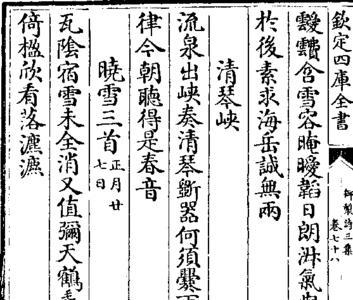 欽定四庫全書
御製詩三集
卷七十八
靉靆含雪容晻曖韜日朗泲氣
於後素求海岳誠無兩
清琴峽
流泉出峽奏清琴斵器何須爨
律今朝聽得是春音
曉雪三首正月廿七日
瓦隂宿雪未全消又值彌天鶴
倚楹欣看落瀌瀌